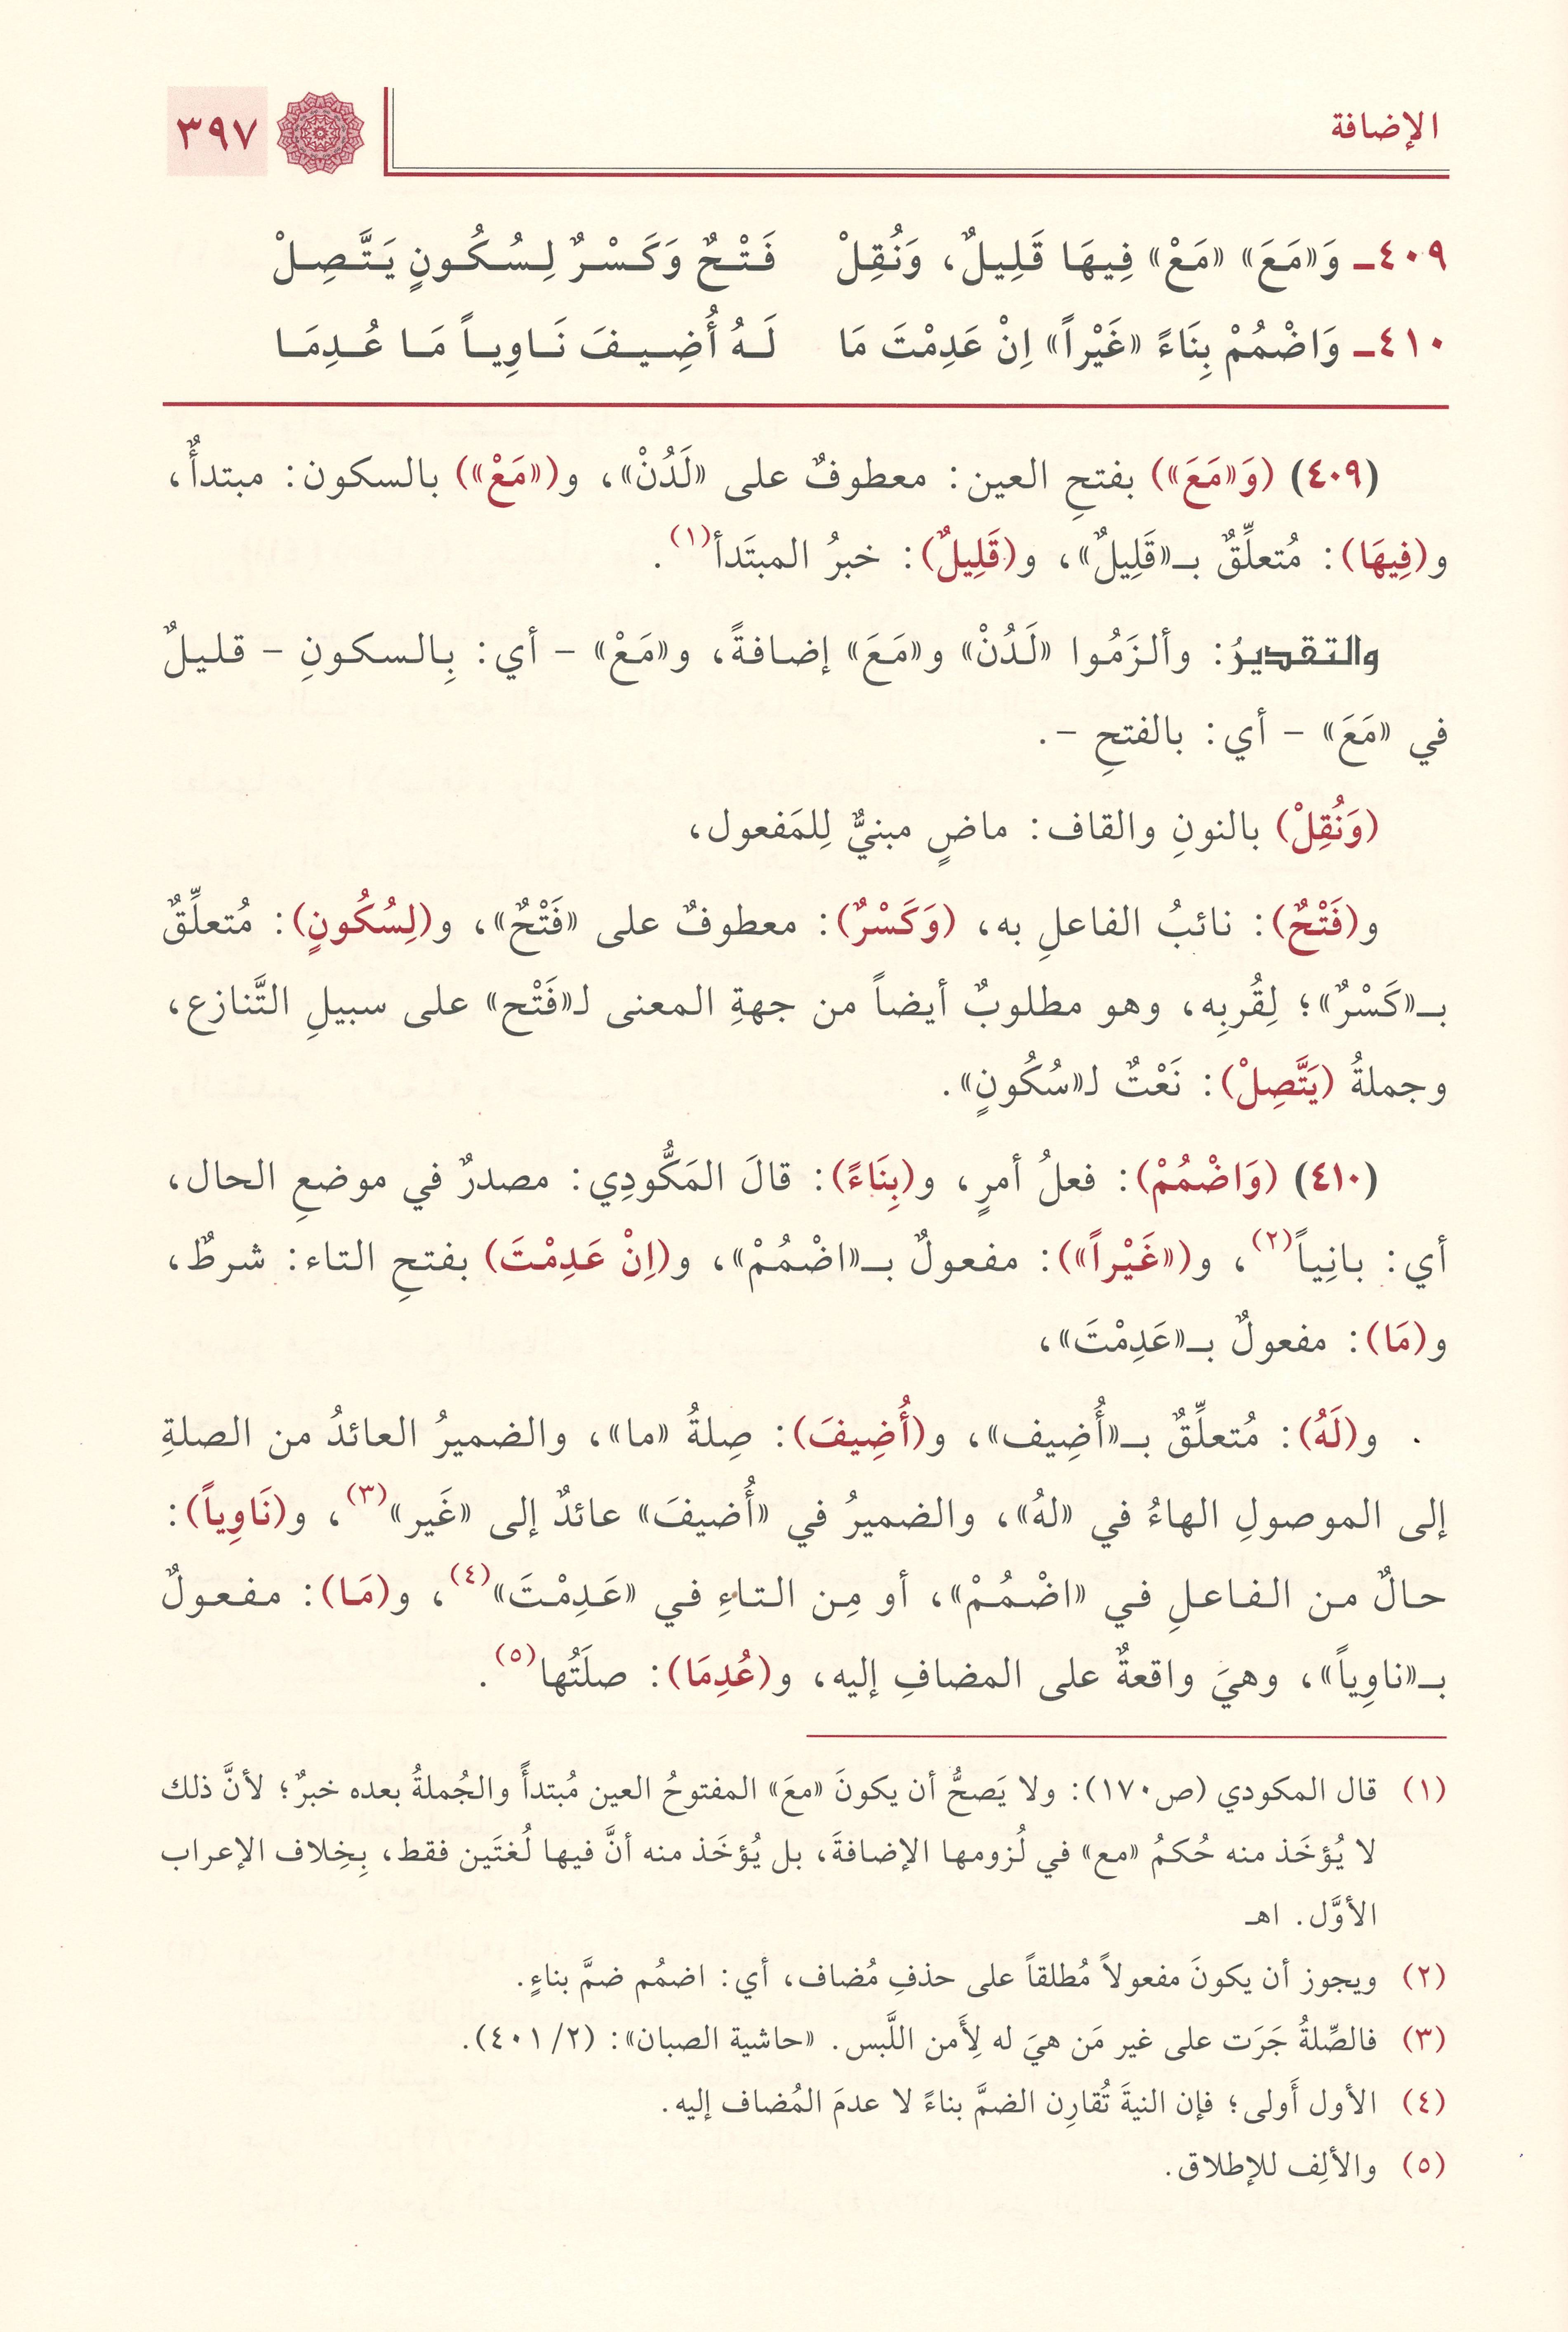 الإضافة
٣٩٧
٤٠٩ـ وَ«مَعَ» «مَعْ» فِيهَا قَلِيلٌ، وَنُقِلْ فَتْحٌ وَكَسْرٌ لِسُكُونٍ يَتَّصِلْ
٤١٠ـ وَاضْمُمْ بِنَاءً «غَيْراً» اِنْ عَدِمْتَ مَا لَهُ أُضِيفَ نَاوِياً مَا عُدِمَا
(٤٠٩) (وَ«مَعَ») بفتحِ العين: معطوفٌ على «لَدُنْ»، و(«مَعْ») بالسكون: مبتدأٌ،
و(فِيهَا): مُتعلِّقٌ بـ«قَلِيلٌ»، و(قَلِيلٌ): خبرُ المبتَدأ(١).
والتقديرُ: وألزَمُوا «لَدُنْ» و«مَعَ» إضافةً، و«مَعْ» - أي: بِالسكونِ - قليلٌ
في «مَعَ» - أي: بالفتحِ -.
(وَنُقِلْ) بالنونِ والقاف: ماضٍ مبنيٌّ لِلمَفعول،
و(فَتْحٌ): نائبُ الفاعلِ به، (وَكَسْرٌ): معطوفٌ على «فَتْحٌ»، و(لِسُكُونٍ): مُتعلِّقٌ
بـ«كَسْرٌ»؛ لِقُربِه، وهو مطلوبٌ أيضاً من جهةِ المعنى لـ«فَتْح» على سبيلِ التَّنازع،
وجملةُ (يَتَّصِلْ): نَعْتٌ لـ«سُكُونٍ».
(٤١٠) (وَاضْمُمْ): فعلُ أمرٍ، و(بِنَاءً): قالَ المَكُّودِي: مصدرٌ في موضعِ الحال،
أي: بانِياً(٢)، و(«غَيْراً»): مفعولٌ بـ«اضْمُمْ»، و(اِنْ عَدِمْتَ) بفتحِ التاء: شرطٌ،
و(مَا): مفعولٌ بـ«عَدِمْتَ»،
و(لَهُ): مُتعلِّقٌ بـ«أُضِيف»، و(أُضِيفَ): صِلةُ «ما»، والضميرُ العائدُ من الصلةِ
إلى الموصولِ الهاءُ في «لهُ»، والضميرُ في «أُضيفَ» عائدٌ إلى «غَير»(٣)، و(نَاوِياً):
حالٌ من الفاعلِ في «اضْمُمْ»، أو مِن التاءِ في «عَدِمْتَ»(٤)، و(مَا): مفعولٌ
بـ«ناوِياً»، وهيَ واقعةٌ على المضافِ إليه، و(عُدِمَا): صلَتُها(٥).
(١) قال المكودي (ص١٧٠): ولا يَصحُّ أن يكونَ «معَ» المفتوحُ العين مُبتدأً والجُملةُ بعده خبرٌ؛ لأنَّ ذلك
لا يُؤخَذ منه حُكمُ «مع» في لُزومها الإضافةَ، بل يُؤخَذ منه أنَّ فيها لُغتَين فقط، بِخِلاف الإعراب
الأوَّل. اهـ
(٢) ويجوز أن يكونَ مفعولاً مُطلقاً على حذفِ مُضاف، أي: اضمُم ضمَّ بناءٍ.
(٣) فالصِّلةُ جَرَت على غير مَن هيَ له لِأَمن اللَّبس. «حاشية الصبان»: (٢/ ٤٠١).
(٤) الأول أَولى؛ فإن النيةَ تُقارِن الضمَّ بناءً لا عدمَ المُضاف إليه.
(٥) والألِف للإطلاق.